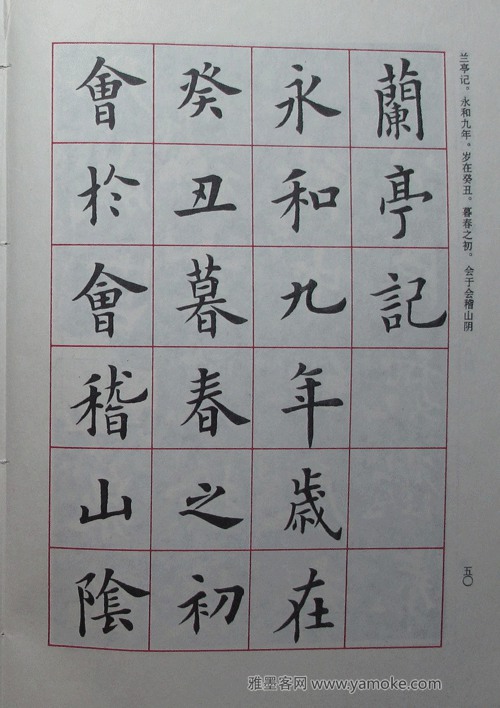 兰亭记。永和九年。岁在癸丑。暮春之初。会于会稽山阴
蘭亭記
永和九年歲在
癸丑暮春之初
會於會稽山陰
五〇
雅墨客网 www.yamoke.com